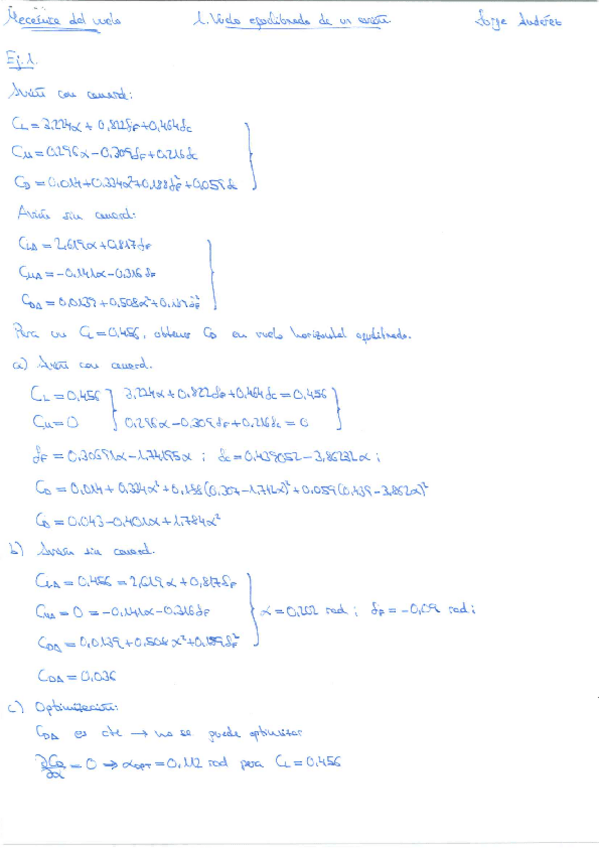 Mecánica del vuelo 1. Vuelo equilibrado de un avión Jorge Andrés
Ej. 1.
Avión con canard:
CL = 3,224α + 0,822δF + 0,464δc
CM = 0,296α − 0,309δF + 0,216δc
CD = 0,014 + 0,334α² + 0,188δF² + 0,059δc
Avión sin canard:
CLA = 2,619α + 0,817δF
CMA = −0,141α − 0,316δF
CDA = 0,0139 + 0,508α² + 0,139δF²
Para un CL = 0,456, obtener CD en vuelo horizontal equilibrado.
a) Avión con canard.
CL = 0,456 } 3,224α + 0,822δF + 0,464δc = 0,456
CM = 0 } 0,296α − 0,309δF + 0,216δc = 0
δF = 0,30691α − 1,74195α ; δc = 0,439052 − 3,86232α ;
CD = 0,014 + 0,334α² + 0,188(0,307 − 1,742α)² + 0,059(0,439 − 3,862α)²
CD = 0,043 − 0,401α + 1,784α²
b) Avión sin canard.
CLA = 0,456 = 2,619α + 0,817δF
CMA = 0 = −0,141α − 0,316δF } α = 0,202 rad ; δF = −0,09 rad ;
CDA = 0,0139 + 0,508α² + 0,139δF²
CDA = 0,036
c) Optimización:
CDA es cte → no se puede optimizar
∂CD/∂α = 0 → αOPT = 0,112 rad para CL = 0,456